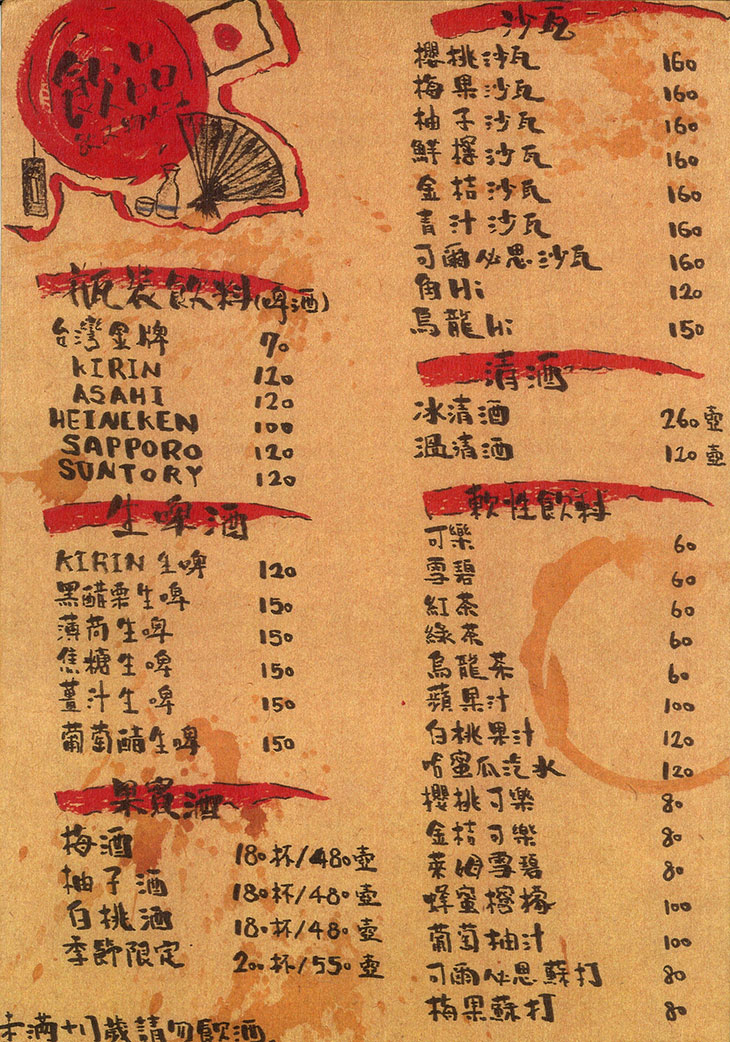 飲品
瓶裝飲料(啤酒)
台灣金牌 70
KIRIN 120
ASAHI 120
HEINEKEN 100
SAPPORO 120
SUNTORY 120
生啤酒
KIRIN 生啤 120
黑醋栗生啤 150
薄荷生啤 150
焦糖生啤 150
薑汁生啤 150
葡萄醋生啤 150
果實酒
梅酒 180杯/480壺
柚子酒 180杯/480壺
白桃酒 180杯/480壺
季節限定 200杯/550壺
未滿十八歲請勿飲酒
沙瓦
櫻桃沙瓦 160
梅果沙瓦 160
柚子沙瓦 160
鮮檸沙瓦 160
金桔沙瓦 160
青汁沙瓦 160
可爾必思沙瓦 160
角Hi 120
烏龍Hi 150
清酒
冰清酒 260壺
溫清酒 120壺
軟性飲料
可樂 60
雪碧 60
紅茶 60
綠茶 60
烏龍茶 60
蘋果汁 100
白桃果汁 120
哈蜜瓜汽水 120
櫻桃可樂 80
金桔可樂 80
萊姆雪碧 80
蜂蜜檸檬 100
葡萄柚汁 100
可爾必思蘇打 80
梅果蘇打 80